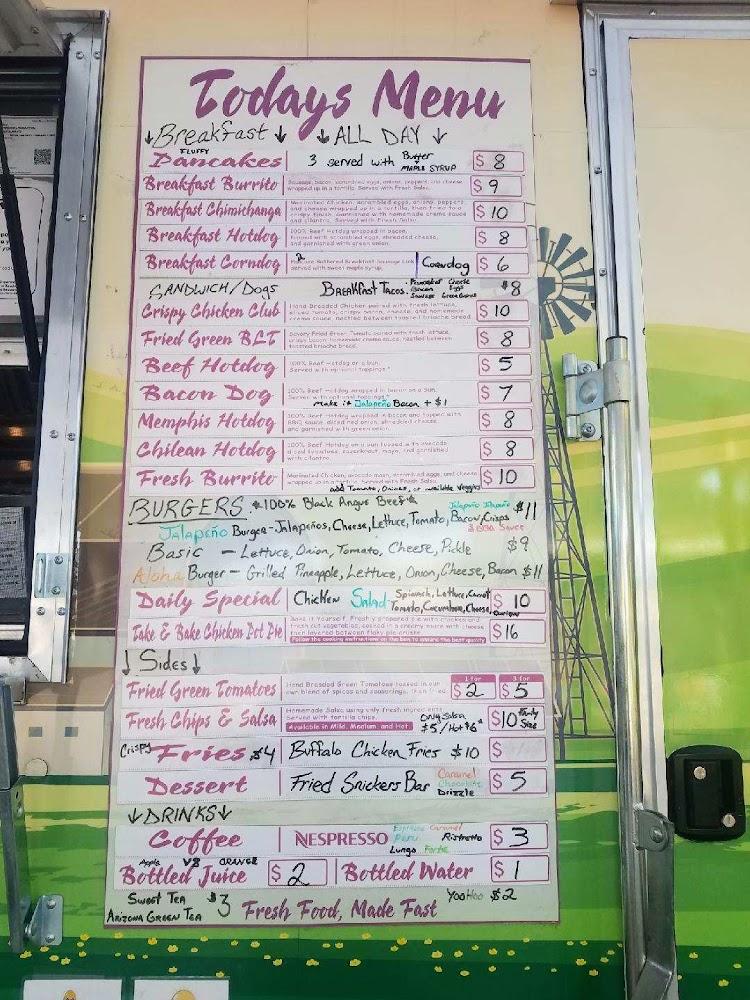 Todays Menu
↓Breakfast↓ ↓ALL DAY↓
FLUFFY
Pancakes 3 served with Butter + MAPLE SYRUP $ 8
Breakfast Burrito Sausage, bacon, scrambled eggs, onion, peppers, and cheese $ 9
wrapped up in a tortilla. Served with Fresh Salsa.
Breakfast Chimichanga Marinated Chicken, scrambled eggs, onion, peppers $ 10
and cheese wrapped up in a tortilla, then fried to a
crispy finish. Garnished with homemade creme sauce
and cilantro. Served with Fresh Salsa.
Breakfast Hotdog 100% Beef Hotdog wrapped in bacon, $ 8
topped with scrambled eggs, shredded cheese,
and garnished with green onion.
Breakfast Corndog 2 Pancake Battered Breakfast Sausage Link Corndog $ 6
served with sweet maple syrup.
SANDWICH/Dogs BREAKFAST TACOS - Cheese Bacon Eggs Sausage $8
Crispy Chicken Club Hand Breaded Chicken paired with fresh lettuce, $ 10
sliced tomato, crispy bacon, cheese, and homemade
creme sauce, nestled between toasted brioche bread.
Fried Green BLT Savory Fried Green Tomato paired with fresh lettuce, $ 8
crispy bacon, homemade creme sauce, nestled between
toasted brioche bread.
Beef Hotdog 100% Beef Hotdog on a bun. $ 5
Served with optional toppings*
Bacon Dog 100% Beef Hotdog wrapped in bacon on a bun. $ 7
Served with optional toppings*
make it Jalapeño Bacon + $1
Memphis Hotdog 100% Beef Hotdog wrapped in bacon and topped with $ 8
BBQ sauce, diced red onion, shredded cheese
and garnished with green onion.
Chilean Hotdog 100% Beef Hotdog on a bun loaded with avocado $ 8
diced tomatoes, sauerkraut, mayo, and garnished
with cilantro.
Fresh Burrito Marinated Chicken, avocado mash, scrambled eggs, and cheese $ 10
wrapped up in a tortilla. Served with Fresh Salsa.
add Tomato, Onions, or available veggies
BURGERS *100% Black Angus Beef* $11
Jalapeño Burger - Jalapeños, Cheese, Lettuce, Tomato, Jalapeño Bacon, Jalapeño Crisps
BBQ Sauce
Basic - Lettuce, Onion, Tomato, Cheese, Pickle $9
Aloha Burger - Grilled Pineapple, Lettuce, Onion, Cheese, Bacon $11
Daily Special Chicken Salad - Spinach, Lettuce, Carrot $ 10
Tomato, Cucumber, Cheese,
Take & Bake Chicken Pot Pie Bake it Yourself. Freshly prepared pie with chicken and $ 16
fresh cut vegetables, cooked in a creamy sauce with cheese
then layered between flaky pie crusts
Follow the cooking instructions on the box to ensure the best quality
↓Sides↓
1 for 3 for
Fried Green Tomatoes Hand Breaded Green Tomatoes tossed in our $ 2 $ 5
own blend of spices and seasonings, then fried
Fresh Chips & Salsa Homemade Salsa using only fresh ingredients $10 Family Size
Served with tortilla chips. Only Salsa
Available in Mild, Medium, and Hot $5/Hot $6*
Crispy Fries $4 Buffalo Chicken Fries $10 $
Dessert Fried Snickers Bar Caramel Chocolate Drizzle $ 5
↓DRINKS↓
Coffee NESPRESSO Espresso Caramel Peru Ristretto Lungo Forte $ 3
Apple V8 ORANGE
Bottled Juice $ 2 Bottled Water $ 1
Sweet Tea
ARIZONA GREEN TEA $3 Fresh Food, Made Fast YooHoo $2